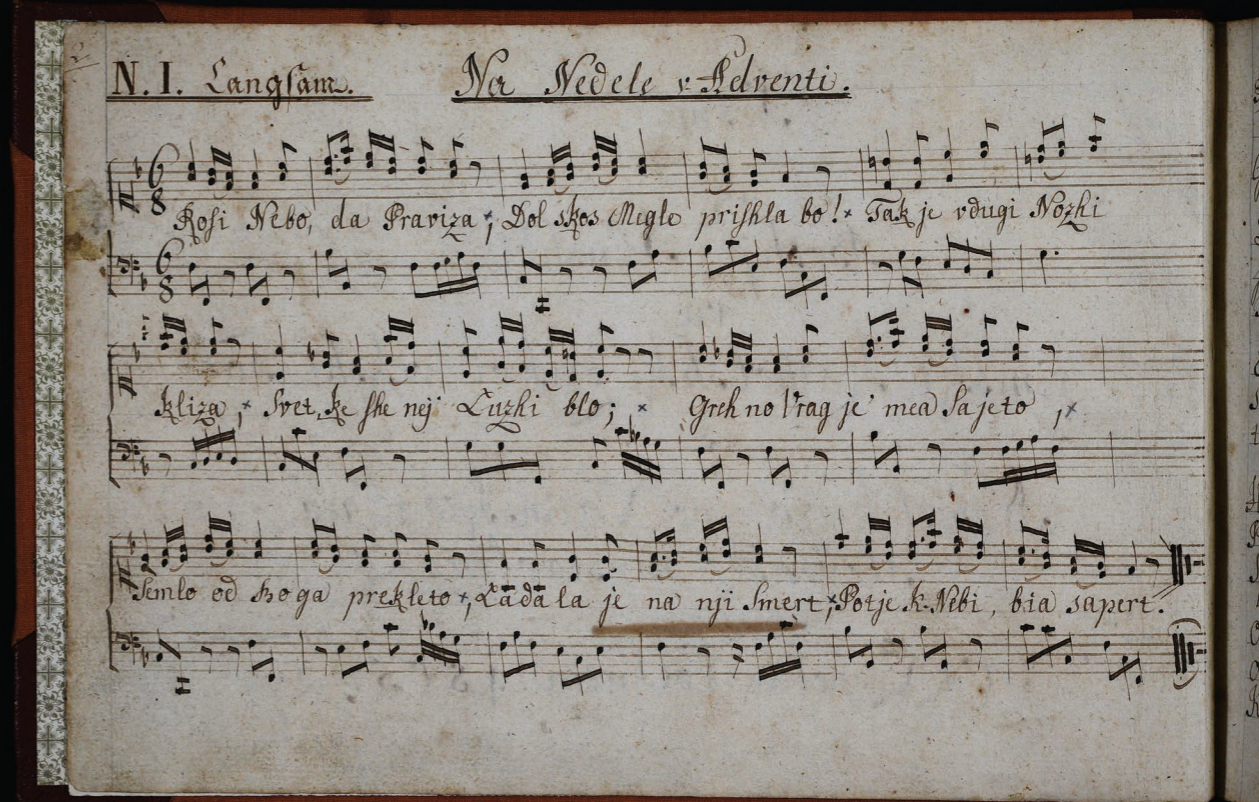 N. I. Langſam. Na Nedele v Adventi.
Roſi Nebo, da Praviza, Dol skos Megle priſhla bo! Tak je vdugi Nozhi
kliza, Svet, ke ſhe nej Luzhi blo; Greh no Vrag je mea Sajeto,
Semlo od Boga prekleto, Ladala je na nji Smert, Potje k Nebi, bia sapert.